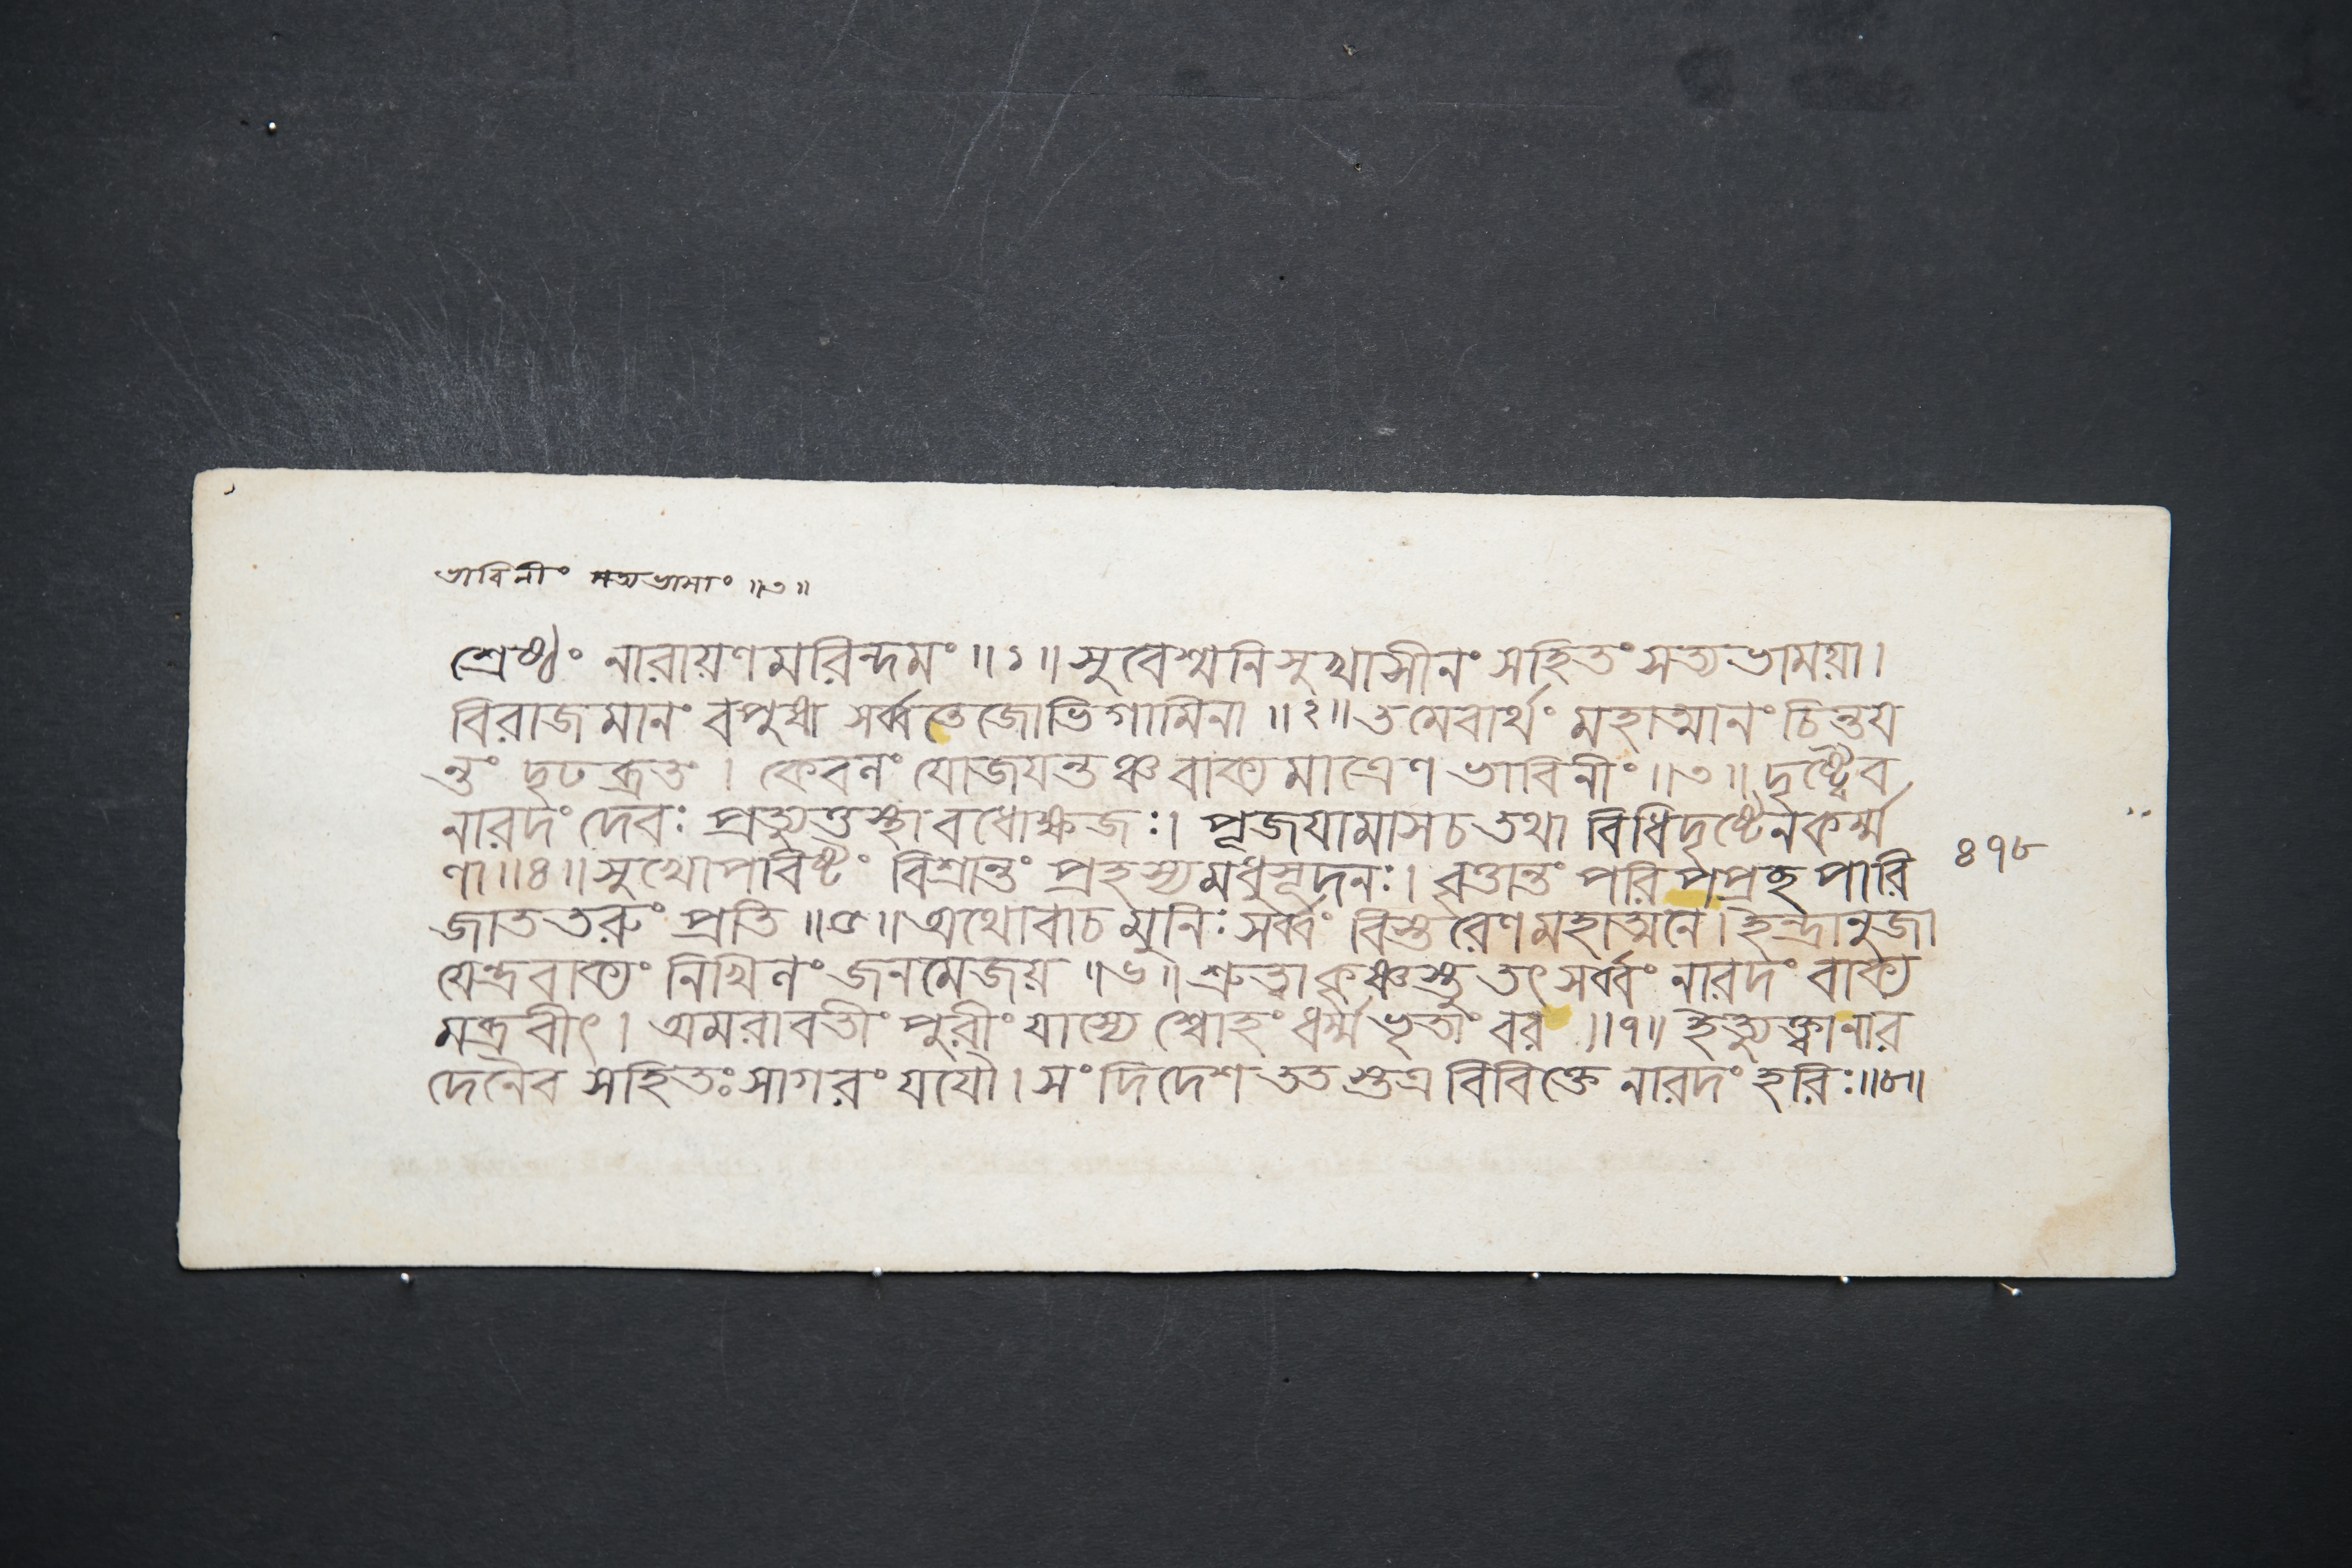 ভাবিনীং সত্যভামাং ॥৩॥
শ্রেষ্ঠং নারায়ণমরিন্দমং ॥১॥ সুবেশ্মনি সুখাসীনং সহিতং সত্যভাময়া।
বিরাজমানং বপুষা সর্ব্বতেজোভিগামিনা ॥২॥ তমেবার্থং মহাত্মানং চিন্তয
ন্তং দৃঢব্রতং । কেবলং যোজযন্তঞ্চ বাক্যমাত্রেণ ভাবিনীং ॥৩॥ দৃষ্ট্বৈব
নারদং দেবঃ প্রত্যুত্তস্থাবধোক্ষজঃ। পূজযামাস চ তথা বিধিদৃষ্টেন কর্ম্ম
ণা ॥৪॥ সুখোপবিষ্টং বিশ্রান্তং প্রহস্য মধুসূদনঃ। বৃত্তান্তং পরিপপ্রচ্ছ পারি
জাততরুং প্রতি ॥৫॥ অথোবাচ মুনিঃ সর্ব্বং বিস্তরেণ মহাত্মনে। ইন্দ্রানুজা
যেন্দ্রবাক্যং নিখিলং জনমেজয় ॥৬॥ শ্রুত্বা কৃষ্ণস্তু তৎ সর্ব্বং নারদং বাক্য
মব্রবীৎ। অমরাবতীং পুরীং যাস্যে শ্বোহং ধর্ম্মভৃতাং বর ॥৭॥ ইত্যুক্ত্বা নার
দেনৈব সহিতঃ সাগরং যযৌ। সংদিদেশ ততস্তত্র বিবিক্তে নারদং হরিঃ॥৮॥
৪৭৮